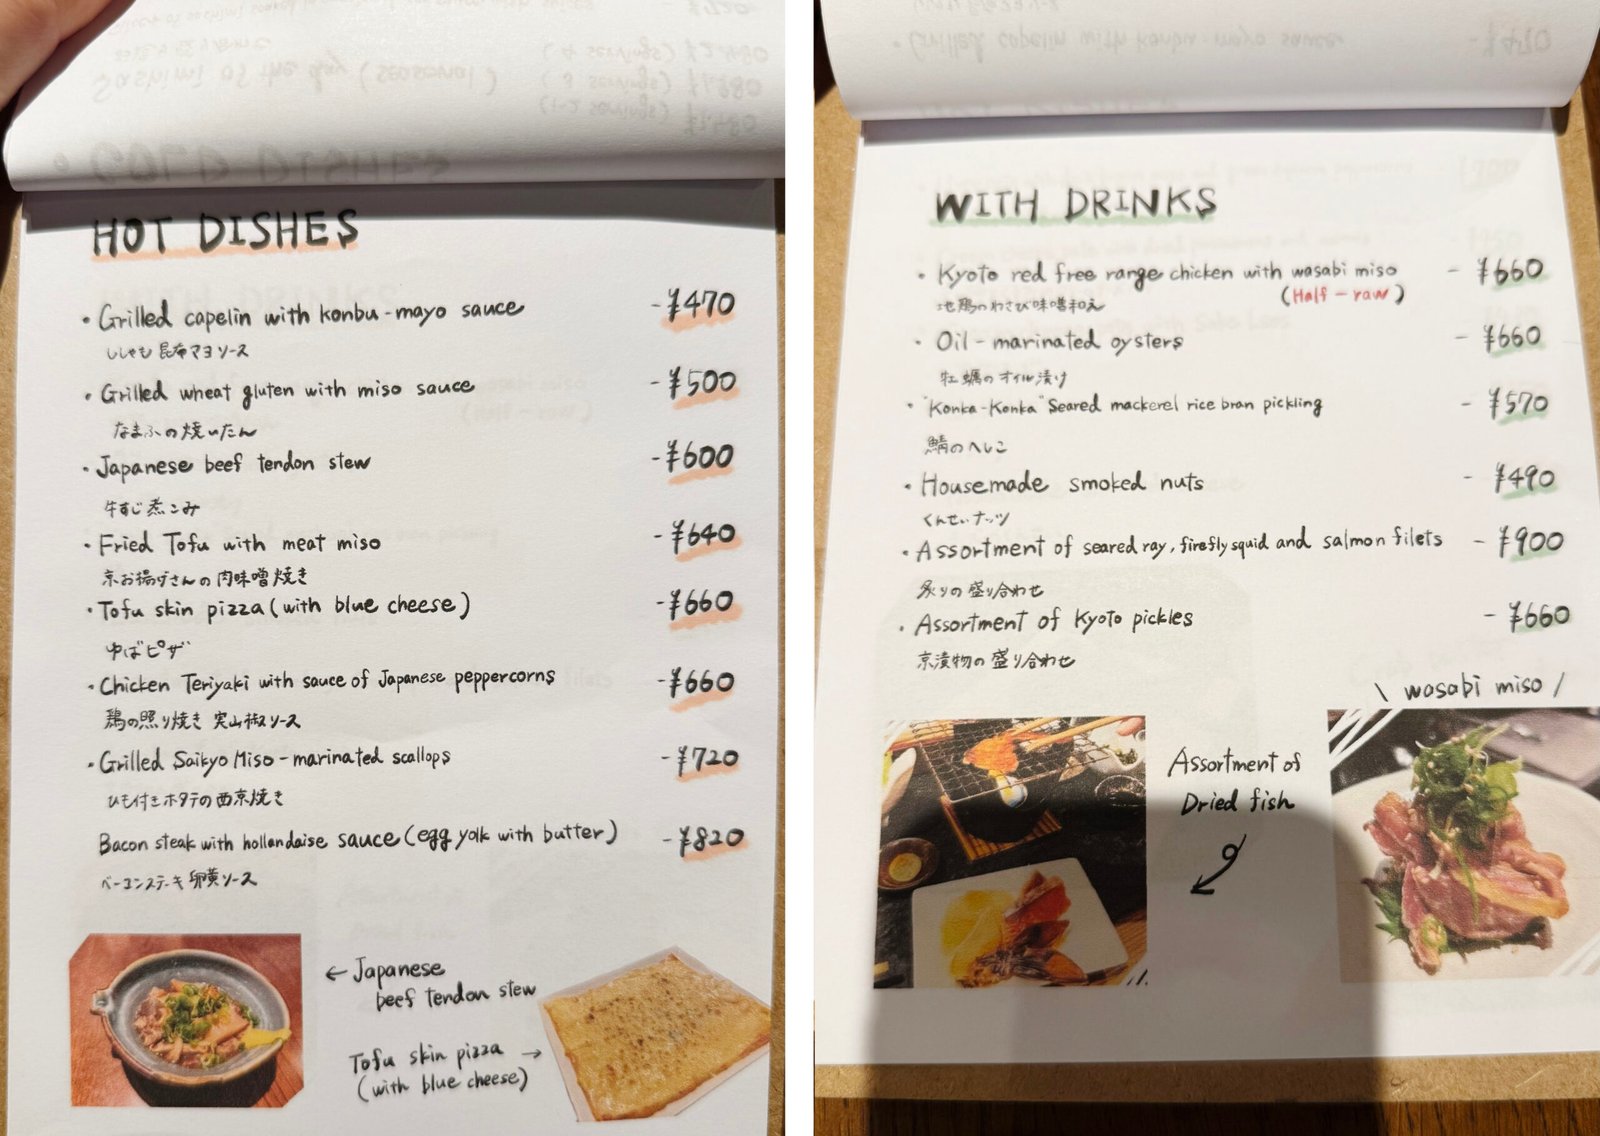 HOT DISHES
・Grilled capelin with konbu-mayo sauce -¥470
ししゃも 昆布マヨソース
・Grilled wheat gluten with miso sauce -¥500
なまふの焼いたん
・Japanese beef tendon stew -¥600
牛すじ煮こみ
・Fried Tofu with meat miso -¥640
京お揚げさんの肉味噌焼き
・Tofu skin pizza (with blue cheese) -¥660
ゆばピザ
・Chicken Teriyaki with sauce of Japanese peppercorns -¥660
鶏の照り焼き 実山椒ソース
・Grilled Saikyo Miso-marinated scallops -¥720
ひも付きホタテの西京焼き
Bacon steak with hollandaise sauce (egg yolk with butter) -¥820
ベーコンステーキ 卵黄ソース
← Japanese
beef tendon stew
Tofu skin pizza →
(with blue cheese)
Grilled capelin with konbu-mayo sauce -¥470
WITH DRINKS
・Kyoto red free range chicken with wasabi miso -¥660
(Half-raw)
地鶏のわさび味噌和え
・Oil-marinated oysters -¥660
牡蠣のオイル漬け
・"Konka-Konka" Seared mackerel rice bran pickling -¥570
鯖のへしこ
・Housemade smoked nuts -¥490
くんせいナッツ
・Assortment of seared ray, firefly squid and salmon filets -¥900
炙りの盛り合わせ
・Assortment of Kyoto pickles -¥660
京漬物の盛り合わせ
\ wasabi miso /
Assortment of
Dried fish